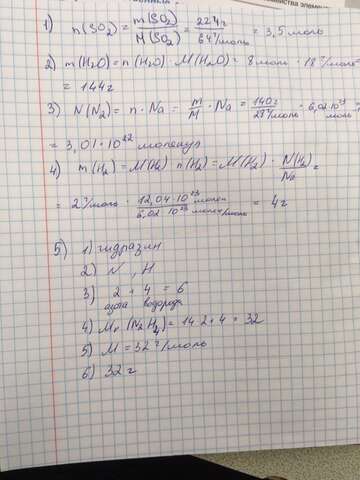 1) n(SO₂) = m(SO₂)/M(SO₂) = 224г/64г/моль = 3,5 моль
2) m(H₂O) = n(H₂O) · M(H₂O) = 8 моль · 18 г/моль
= 144г
3) N(N₂) = n · Na = m/M · Na = 140г/28г/моль · 6,02·10²³ моль
= 3,01 · 10²² молекул
4) m(H₂) = M(H₂) n(H₂) = M(H₂) · N(H₂)/Na =
= 2г/моль · 12,04·10²³ молек/6,02·10²³ молек/моль = 4г
5) 1) гидразин
2) N, H
3) 2 + 4 = 6
азота водорода
4) Mr (N₂H₄) = 14·2+4 = 32
5) M = 32 г/моль
6) 32 г